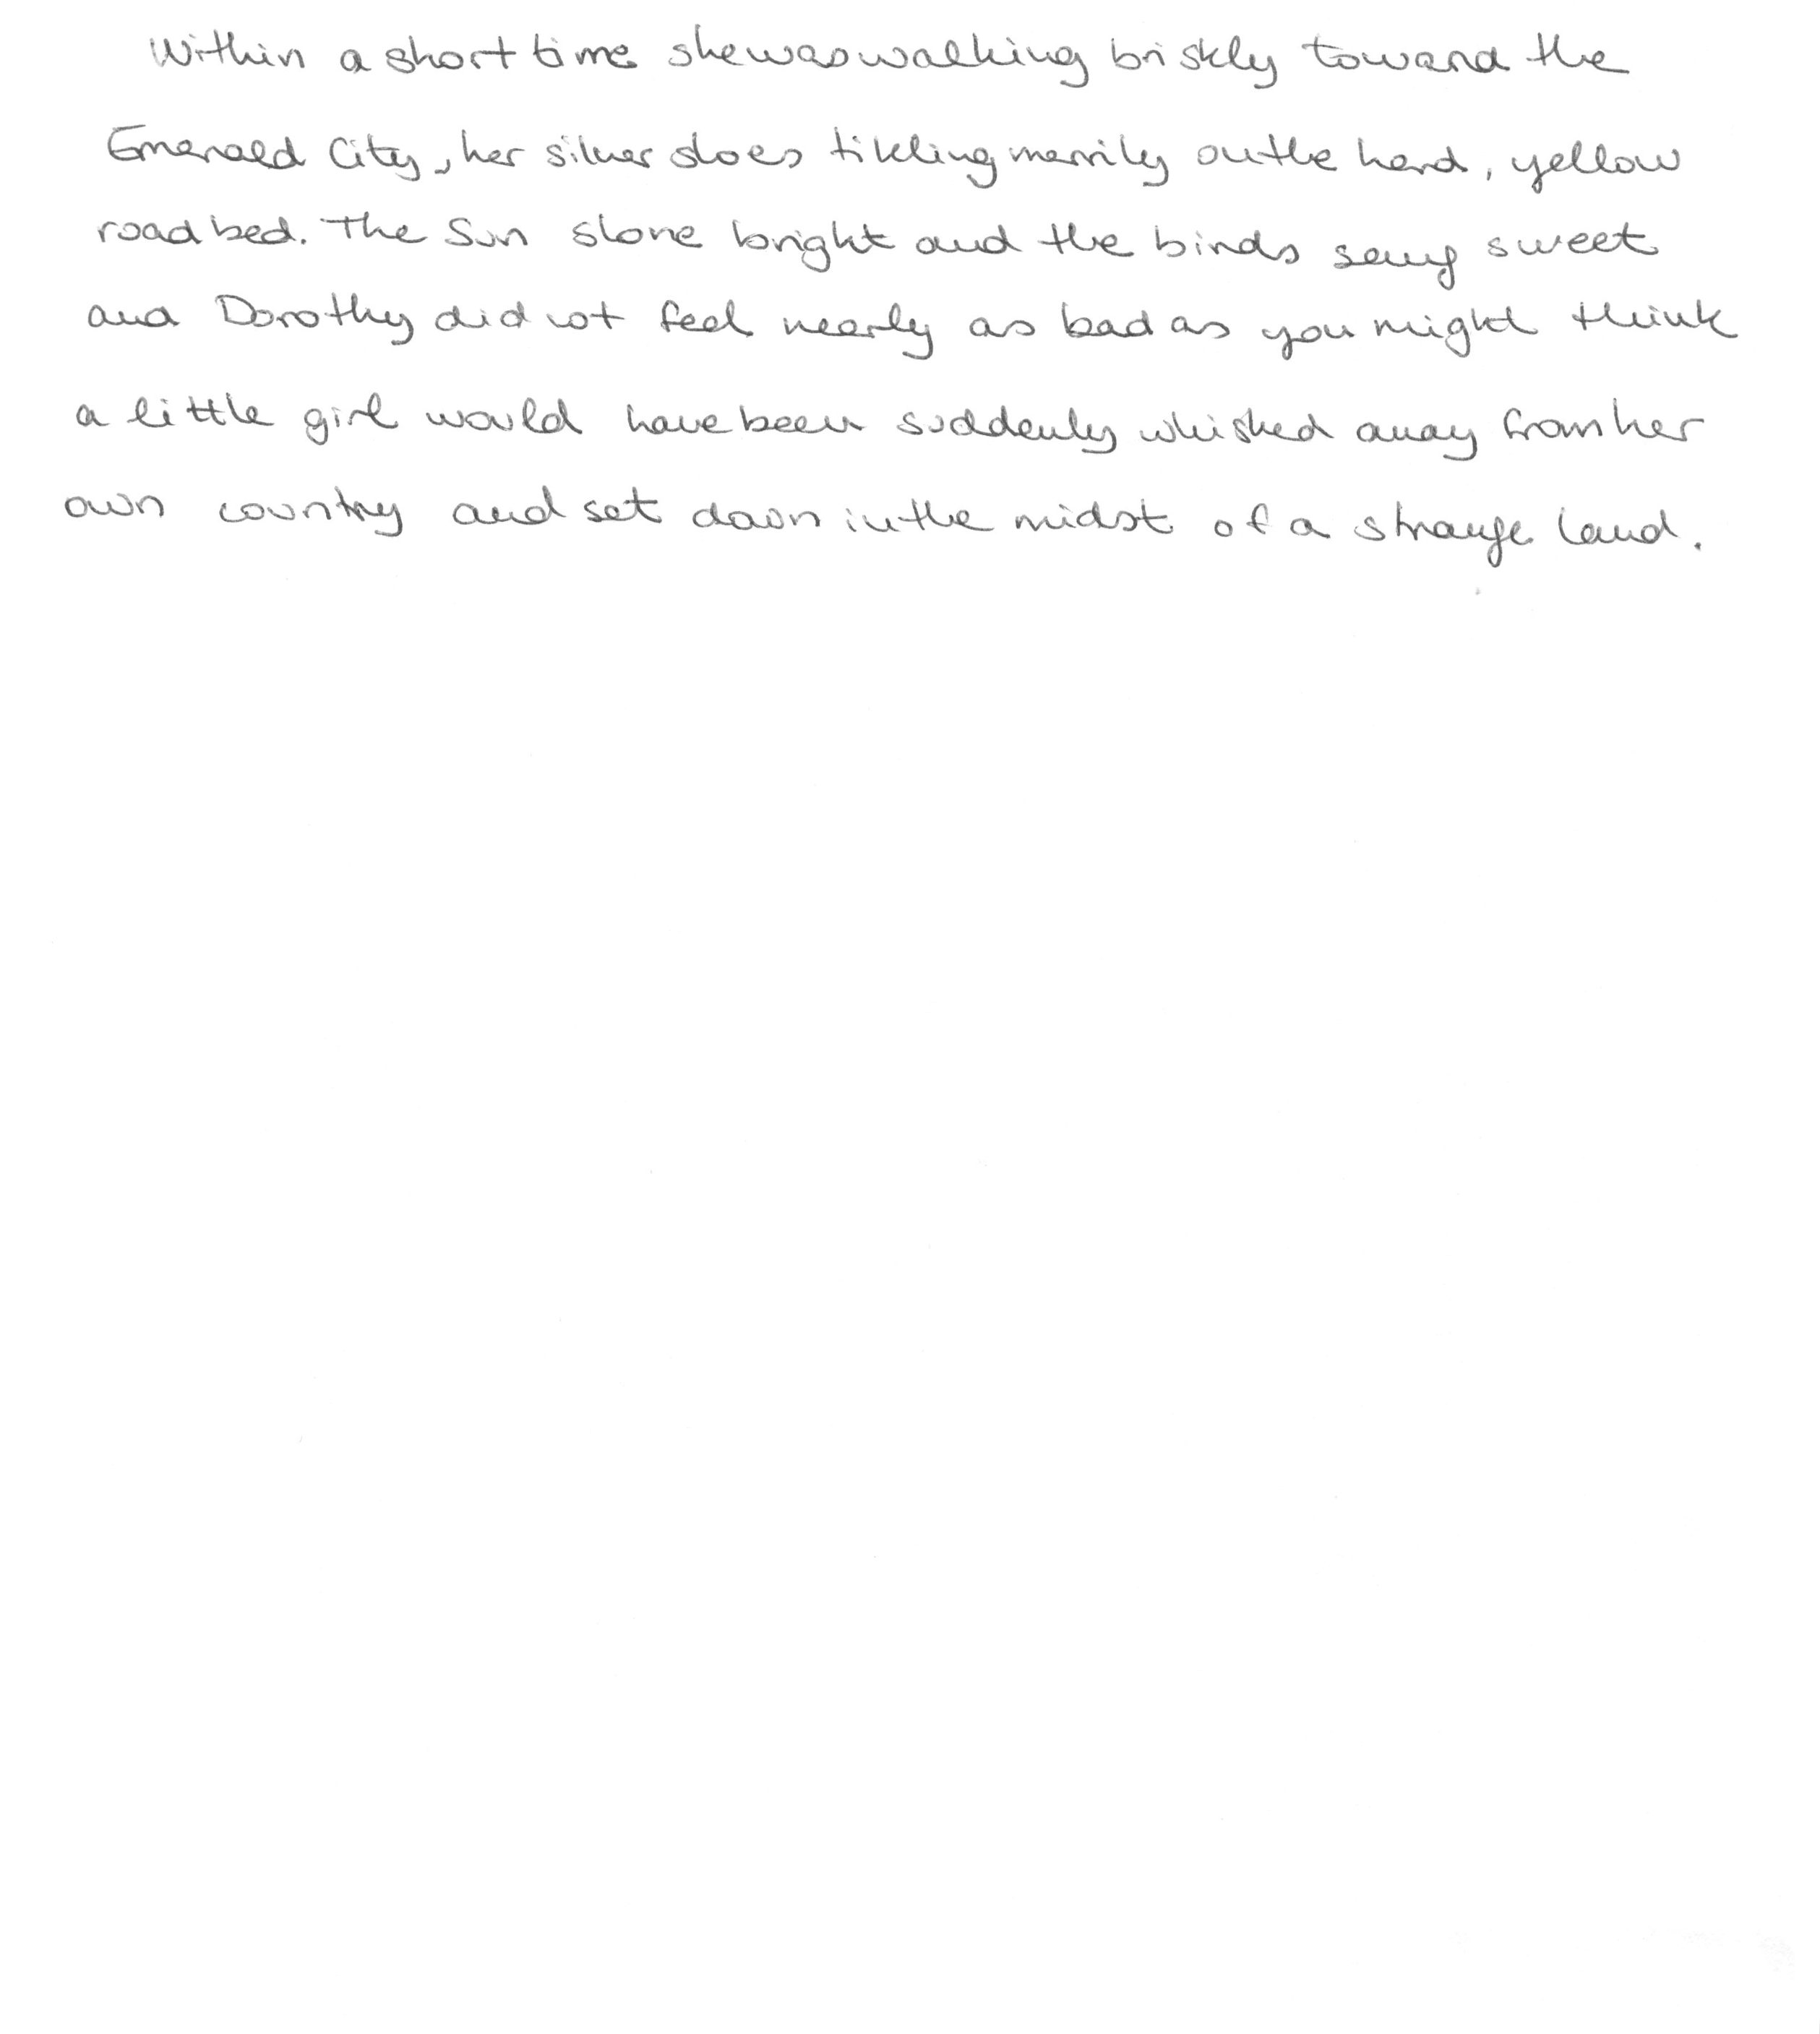 Within a short time she was walking briskly toward the
Emerald City, her silver shoes tikling merrily on the hard, yellow
road bed. The Sun shone bright and the birds sang sweet
and Dorothy did not feel nearly as bad as you might think
a little girl would have been suddenly whisked away from her
own country and set down in the midst of a strange land.